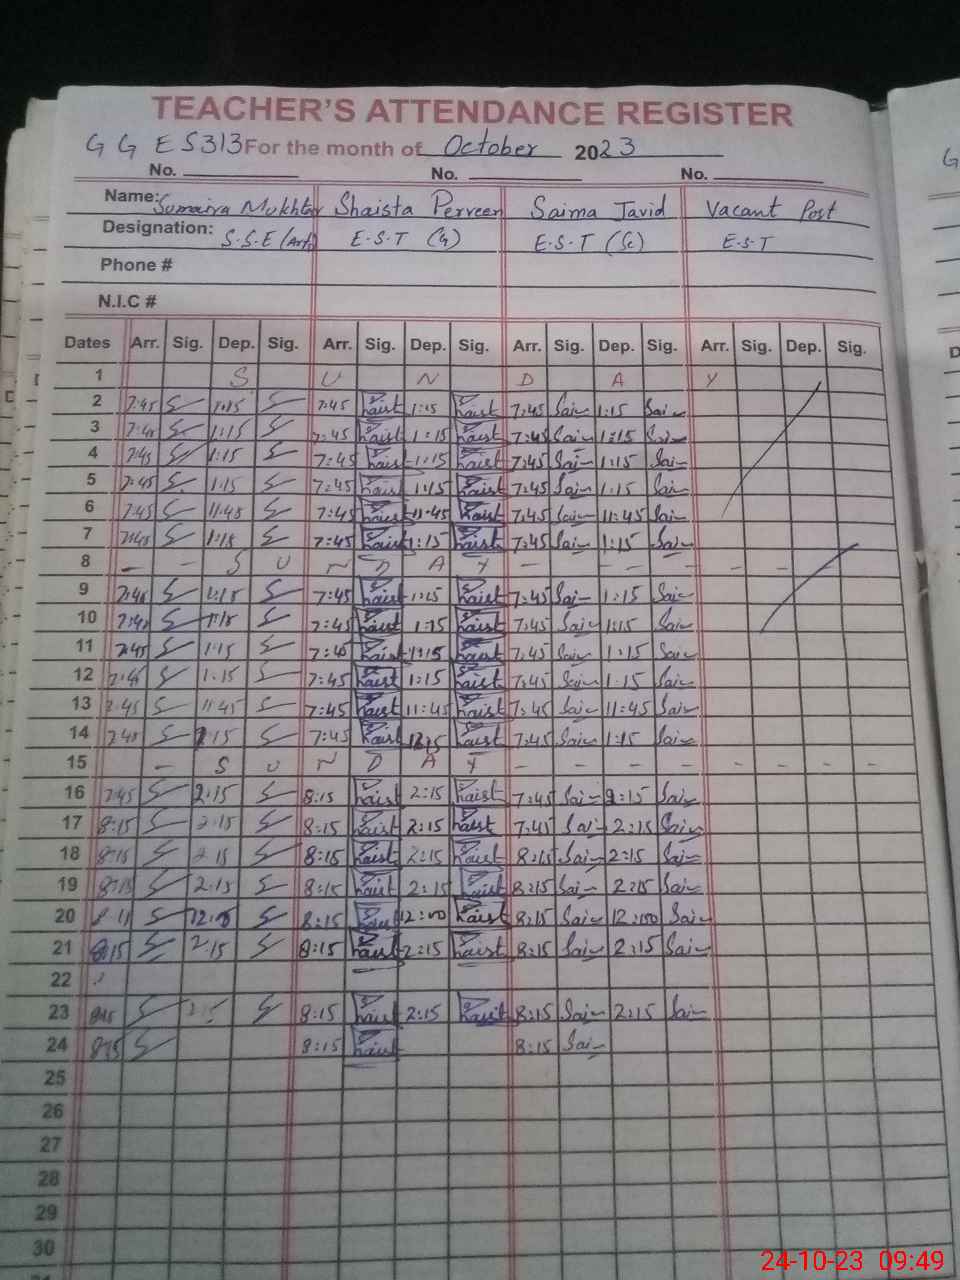 TEACHER'S ATTENDANCE REGISTER
G G E S 313 For the month of October 2023
No. No. No.
Name: Sumaira Mukhtar Shaista Perveen Saima Javid Vacant Post
Designation: S.S.E (Arts) E.S.T (G) E.S.T (Sc) E.S.T
Phone #
N.I.C #
Dates Arr. Sig. Dep. Sig. Arr. Sig. Dep. Sig. Arr. Sig. Dep. Sig. Arr. Sig. Dep. Sig.
1 S U N D A Y
2 7:45 1:15 7:45 Shaist 1:15 Shaist 7:45 Sai 1:15 Sai
3 7:45 1:15 7:45 Shaist 1:15 Shaist 7:45 Sai 1:15 Sai
4 7:45 1:15 7:45 Shaist 1:15 Shaist 7:45 Sai 1:15 Sai
5 7:45 1:15 7:45 Shaist 1:15 Shaist 7:45 Sai 1:15 Sai
6 7:45 11:45 7:45 Shaist 11:45 Shaist 7:45 Sai 11:45 Sai
7 7:45 1:15 7:45 Shaist 1:15 Shaist 7:45 Sai 1:15 Sai
8 - - S U N D A Y - - - - - -
9 7:45 1:15 7:45 Shaist 1:15 Shaist 7:45 Sai 1:15 Sai
10 7:45 1:15 7:45 Shaist 1:15 Shaist 7:45 Sai 1:15 Sai
11 7:45 1:15 7:45 Shaist 1:15 Shaist 7:45 Sai 1:15 Sai
12 7:45 1:15 7:45 Shaist 1:15 Shaist 7:45 Sai 1:15 Sai
13 7:45 11:45 7:45 Shaist 11:45 Shaist 7:45 Sai 11:45 Sai
14 7:45 1:15 7:45 Shaist Shaist 7:45 Sai 1:15 Sai
15 - S U N D A Y - - - - - - - -
16 7:45 2:15 8:15 Shaist 2:15 Shaist 7:45 Sai 2:15 Sai
17 8:15 2:15 8:15 Shaist 2:15 Shaist 7:45 Sai 2:15 Sai
18 8:15 2:15 8:15 Shaist 2:15 Shaist 8:15 Sai 2:15 Sai
19 8:15 2:15 8:15 Shaist 2:15 Shaist 8:15 Sai 2:15 Sai
20 8:15 Shaist 12:00 Shaist 8:15 Sai 12:00 Sai
21 8:15 2:15 8:15 Shaist 2:15 Shaist 8:15 Sai 2:15 Sai
22
23 8:15 2:15 8:15 Shaist 2:15 Shaist 8:15 Sai 2:15 Sai
24 8:15 8:15 Shaist 8:15 Sai
25
26
27
28
29
30
24-10-23 09:49